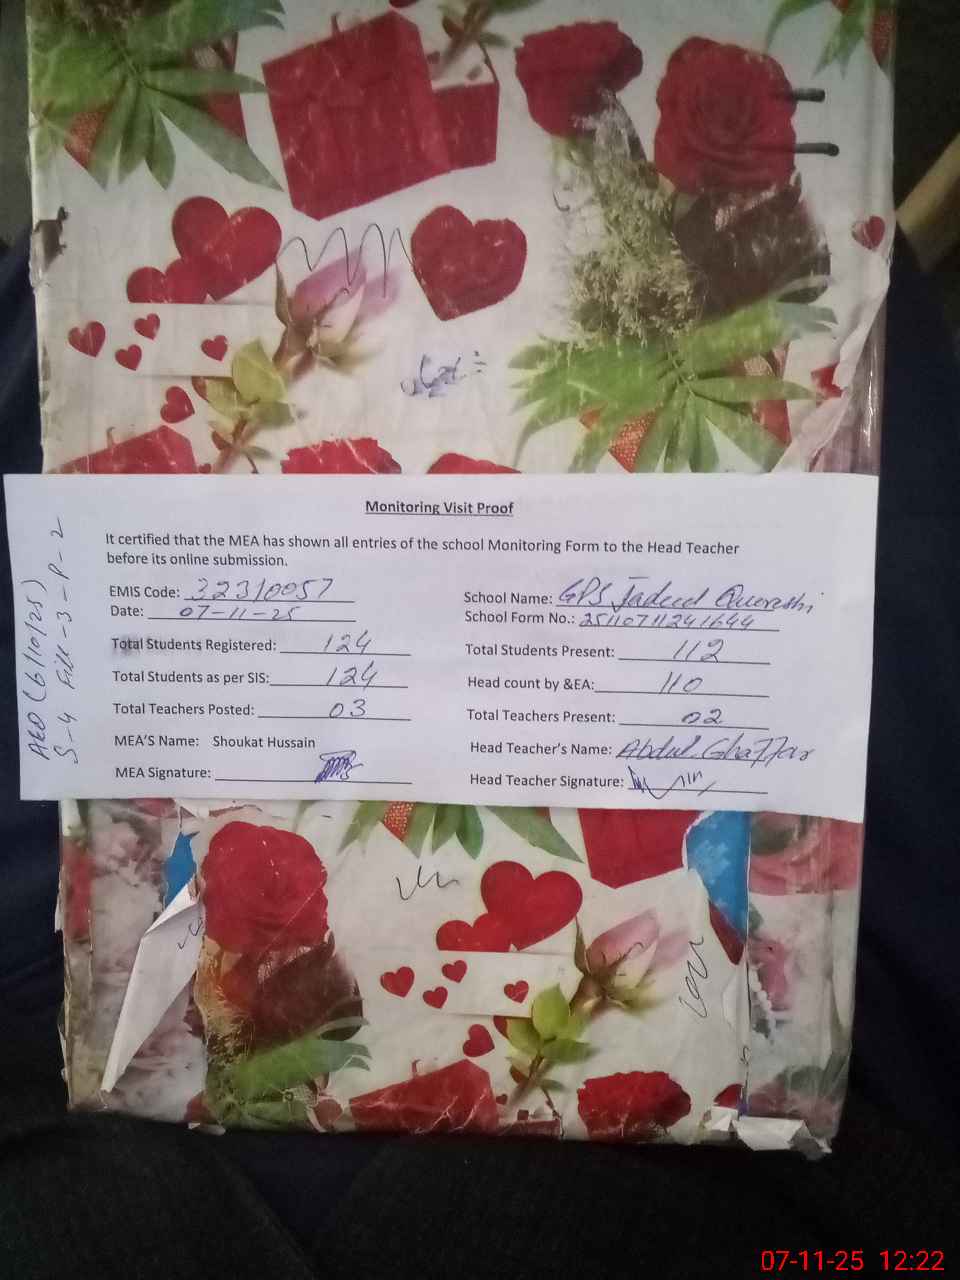 Monitoring Visit Proof
It certified that the MEA has shown all entries of the school Monitoring Form to the Head Teacher
before its online submission.
EMIS Code: 32310057
School Name: GPS Jadeed Qureshi
Date: 07-11-25
School Form No.: 25110711241644
Total Students Registered: 124
Total Students Present: 112
Total Students as per SIS: 124
Head count by &EA: 110
Total Teachers Posted: 03
Total Teachers Present: 02
MEA'S Name: Shoukat Hussain
Head Teacher's Name: Abdul Ghaffar
MEA Signature:
Head Teacher Signature:
AEO (6/10/25)
S-4 Fill-3-P-2
07-11-25 12:22